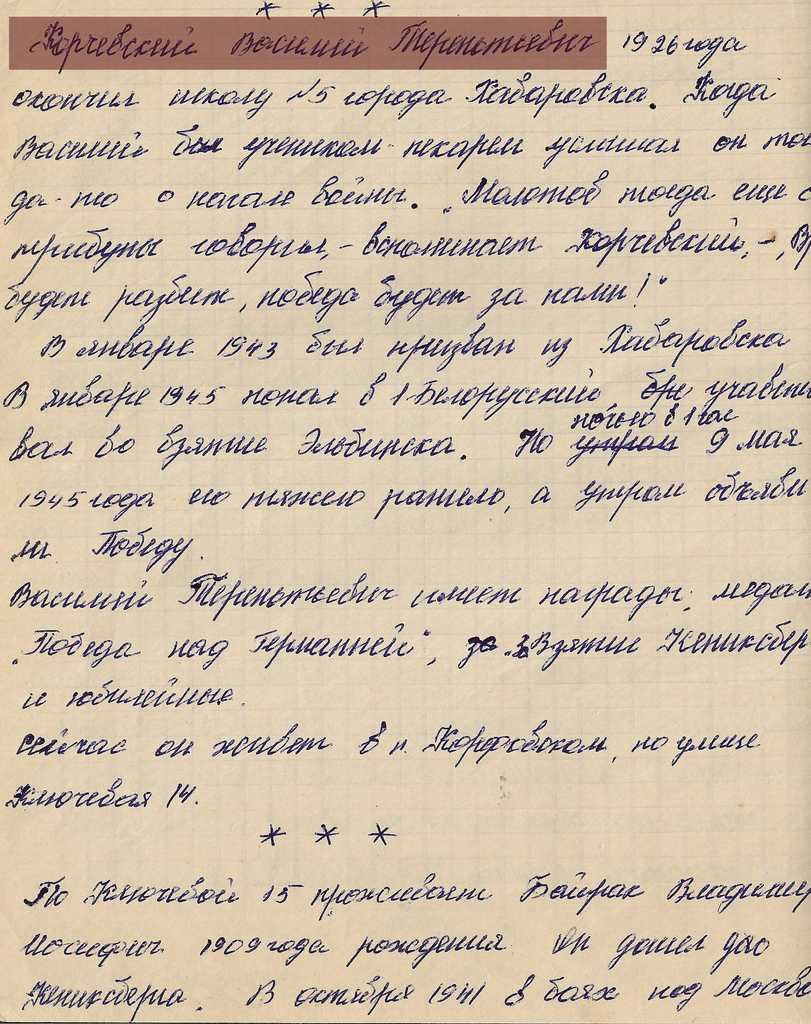 * * *
Корчевский Василий Терентьевич 1926 года
окончил школу №5 города Хабаровска. Когда
Василий был учеником-пекарем услышал он тог
да-то о начале войны. „Молотов тогда еще с
трибуны говорил, - вспоминает Корчевский, -, Вр
будет разбит, победа будет за нами!"
В январе 1943 был призван из Хабаровска
В январе 1945 попал в 1-Белорусский учавство
ночью в 1 час
вал во взятие Эльбинска. Но утром 9 мая
1945 года его тяжело ранело, а утром объяви
ли Победу.
Василий Терентьевич имеет награды: медал
„Победа над Германией", за „За Взятие Кениксбер
и юбилейные.
Сейчас он живет в п. Корфовском, по улице
Ключевая 14.
* * *
По Ключевой 15 проживает Байрак Владимир
Иосифич 1909 года рождения Он дошел до
Кениксберга. В октября 1941 в боях под Москво